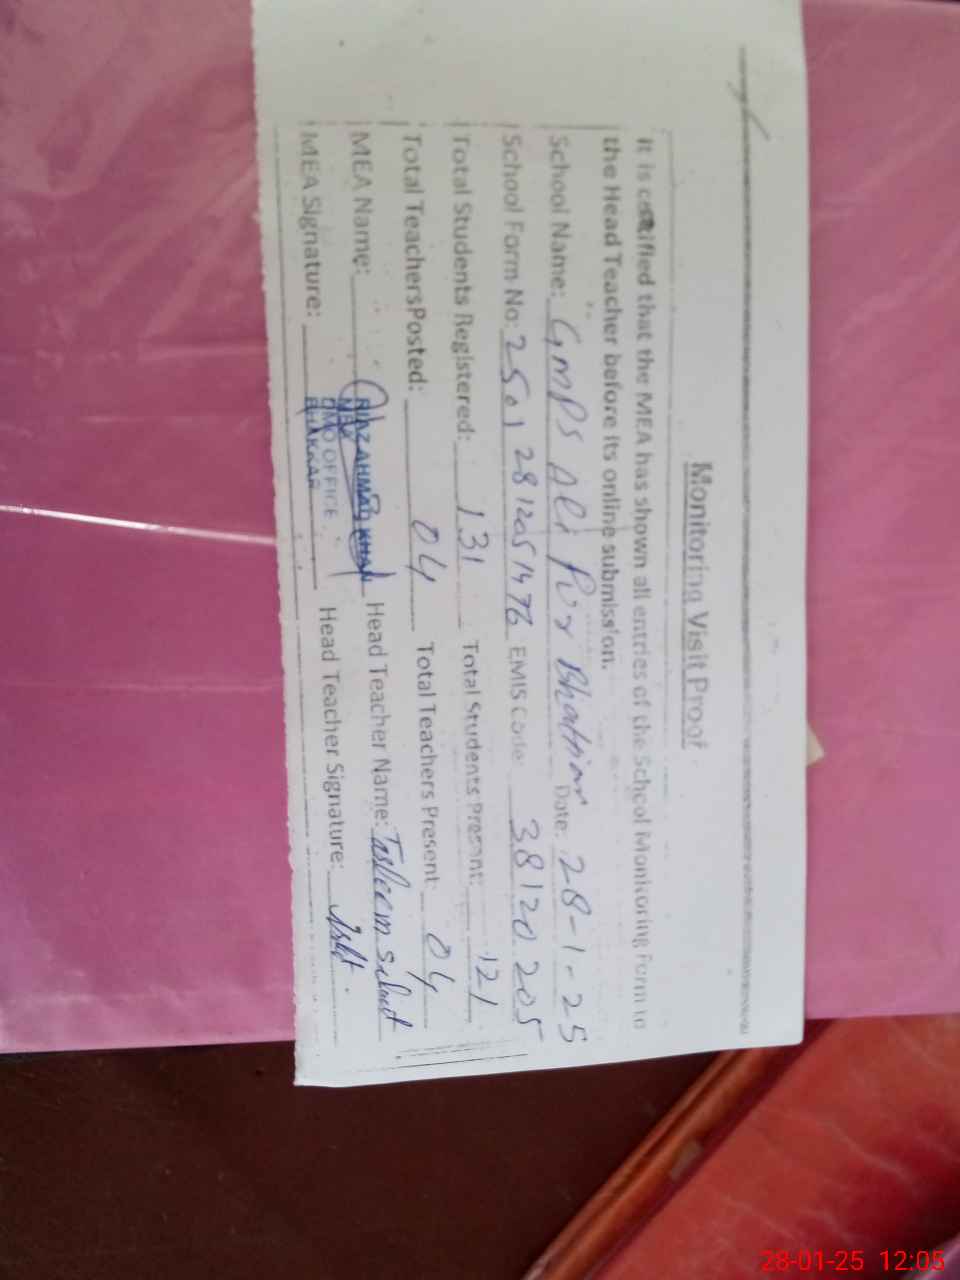 Monitoring Visit Proof
It is certified that the MEA has shown all entries of the School Monitoring Form to
the Head Teacher before its online submission.
School Name: GMPS Ali Pur Bhattian Date: 28-1-25
School Form No: 2501 2812051476 EMIS Code: 38120205
Total Students Registered: 131 Total Students Present: 121
Total TeachersPosted: 04 Total Teachers Present: 04
MEA Name: RIAZ AHMAD KHAN Head Teacher Name: Tasleem
MEA
DMO OFFICE
BHAKKAR
MEA Signature: Head Teacher Signature:
28-01-25 12:05